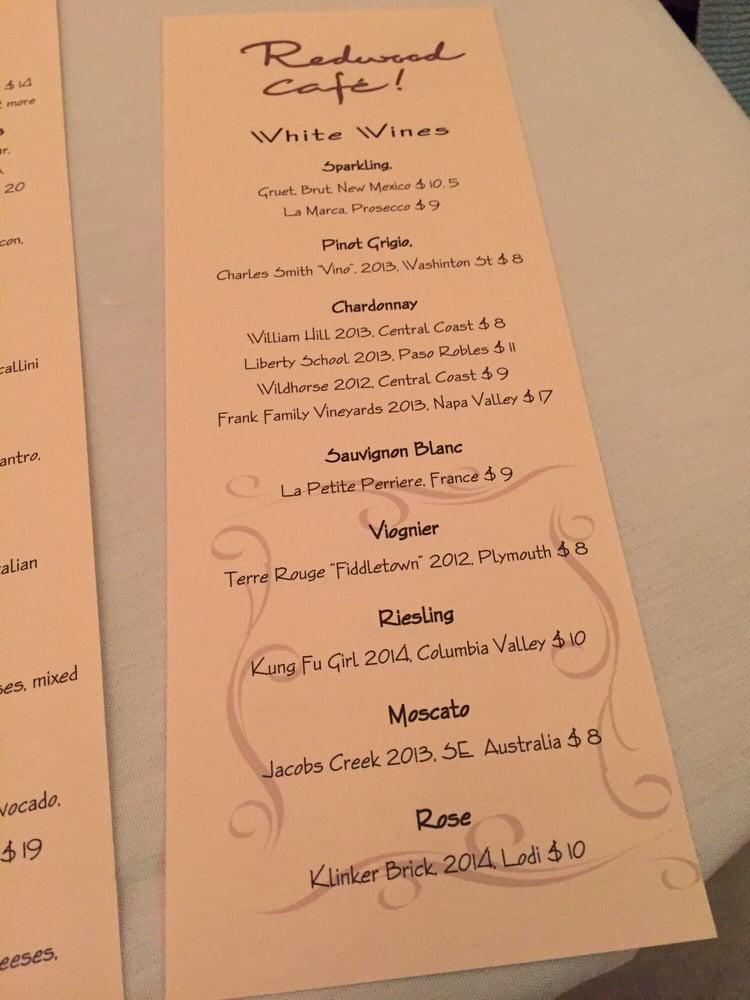 $14
more
ur.
20
con,
callini
antro,
alian
ses, mixed
vocado,
$19
eeses,
Redwood
Café!
White Wines
Sparkling,
Gruet, Brut, New Mexico $10.5
La Marca, Prosecco $9
Pinot Grigio,
Charles Smith "Vino", 2013, Washinton St $8
Chardonnay
William Hill 2013, Central Coast $8
Liberty School 2013, Paso Robles $11
Wildhorse 2012, Central Coast $9
Frank Family Vineyards 2013, Napa Valley $17
Sauvignon Blanc
La Petite Perriere, France $9
Viognier
Terre Rouge "Fiddletown" 2012, Plymouth $8
Riesling
Kung Fu Girl 2014, Columbia Valley $10
Moscato
Jacobs Creek 2013, SE Australia $8
Rose
Klinker Brick, 2014, Lodi $10